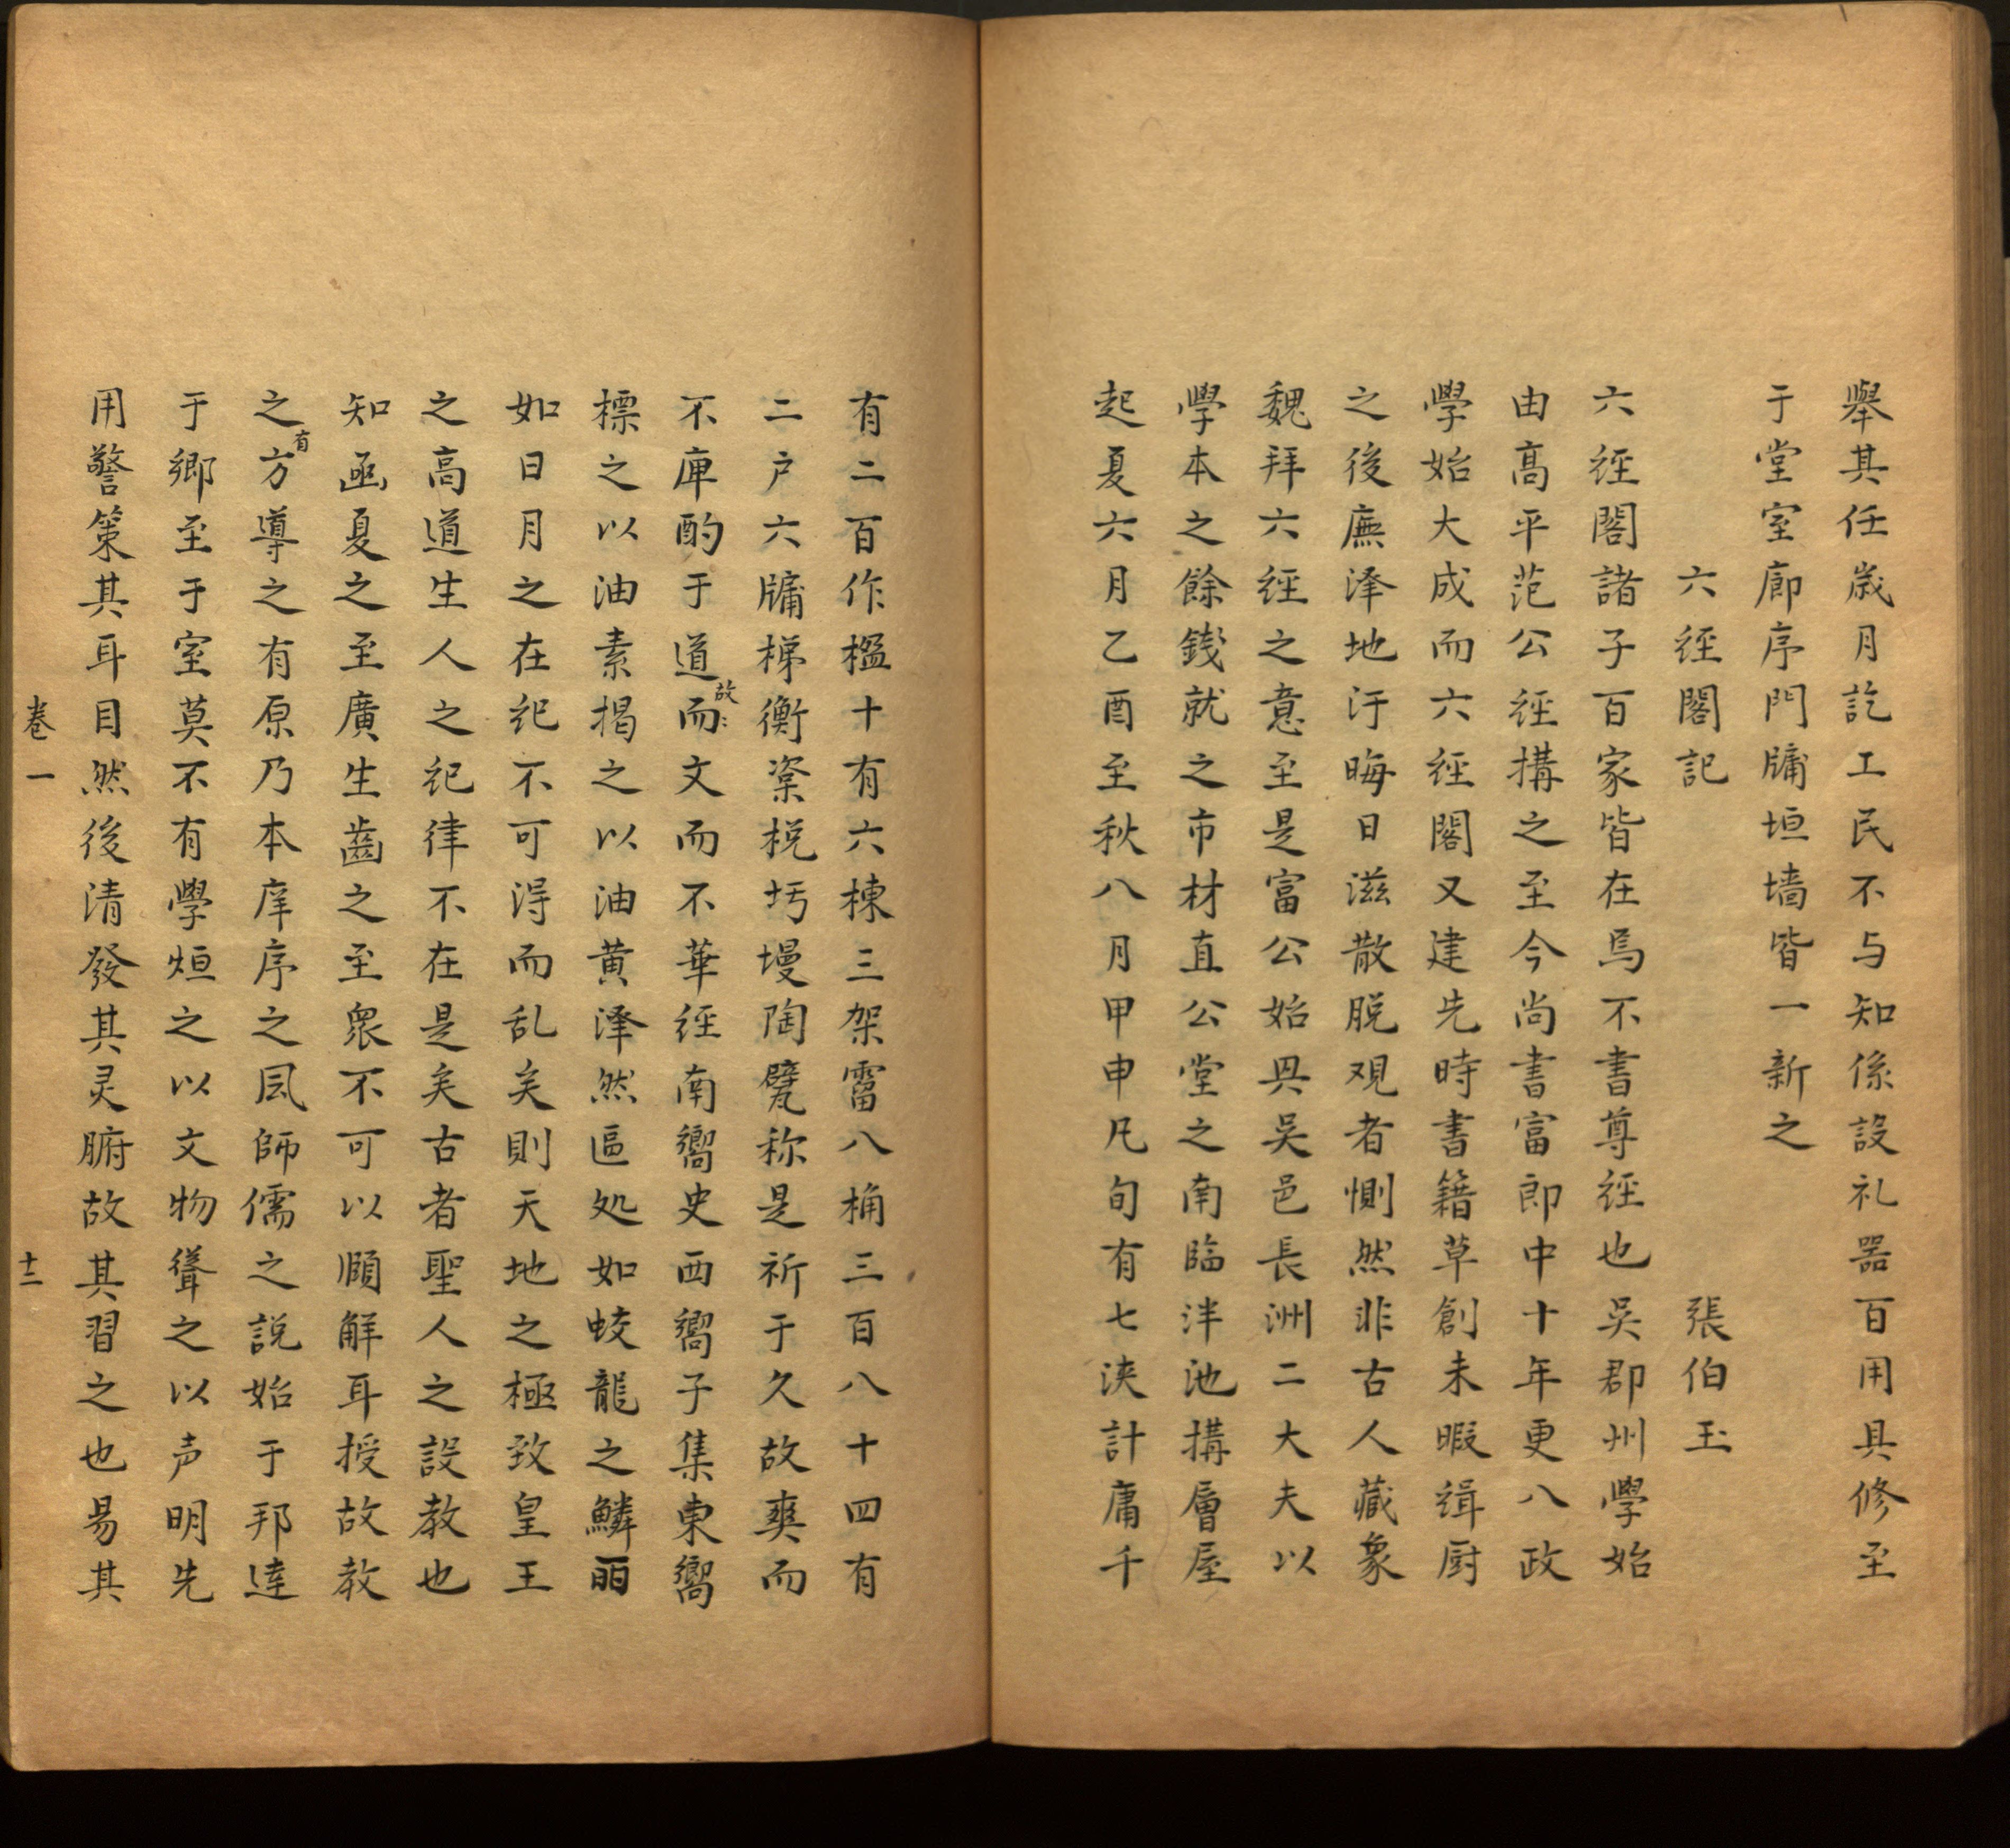 舉其任歲月訖工民不与知係設礼噐百用具修至
于堂室廊序門牗垣墻皆一新之
六經閣記 張伯玉
六經閣諸子百家皆在焉不書尊經也吳郡州學始
由髙平范公經搆之至今尚書富郎中十年更八政
學始大成而六經閣又建先時書籍草創未暇緝厨
之後廡泽地汙晦日滋散脱观者惻然非古人藏象
魏拜六經之意至是富公始與吳邑長洲二大夫以
學本之餘錢就之市材直公堂之南臨泮池搆層屋
起夏六月乙酉至秋八月甲申凡旬有七浹計庸千
有二百作楹十有六棟三架霤八桷三百八十四有
二户六牗梯衡粢棁圬墁陶甓称是祈于久故爽而
不庳酌于道而文而不華經南嚮史西嚮子集東嚮
故〻
標之以油素揭之以油黄泽然區处如蛟龍之鱗丽
如日月之在紀不可淂而乱矣則天地之極致皇王
之高道生人之紀律不在是矣古者聖人之設教也
知函夏之至廣生齒之至衆不可以頤解耳授故教
之方導之有原乃本庠序之風師儒之説始于邦逹
有
于鄉至于室莫不有學烜之以文物聳之以声明先
用警策其耳目然後清發其灵腑故其習之也易其
卷一 十二